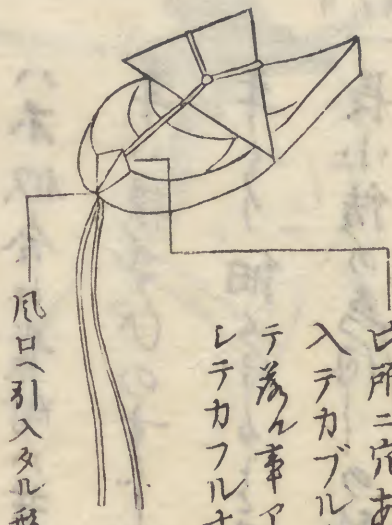 此所ニ穴あ
入テカブル
テ落ル事ア
レテカフルナ
風口ヘ引入タル形